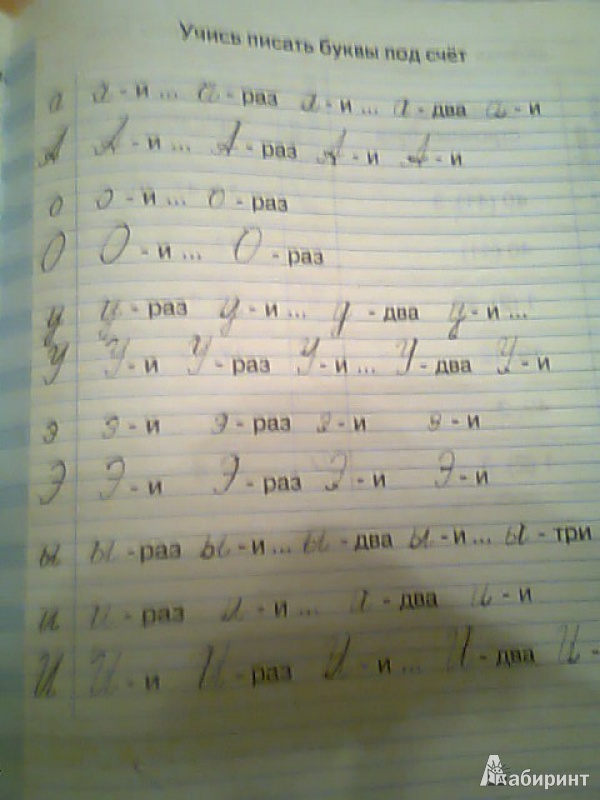 Учись писать буквы под счёт
а а - и ... а - раз а - и ... а - два а - и
А А - и ... А - раз А - и А - и
о о - и ... о - раз
О О - и ... О - раз
у у - раз у - и ... у - два у - и ...
У У - и У - раз У - и ... У - два У - и
э э - и э - раз э - и э - и
Э Э - и Э - раз Э - и Э - и
ы ы - раз ы - и ... ы - два ы - и ... ы - три
и и - раз и - и ... и - два и - и
И И - и И - раз И - и ... И - два И -
Лабиринт